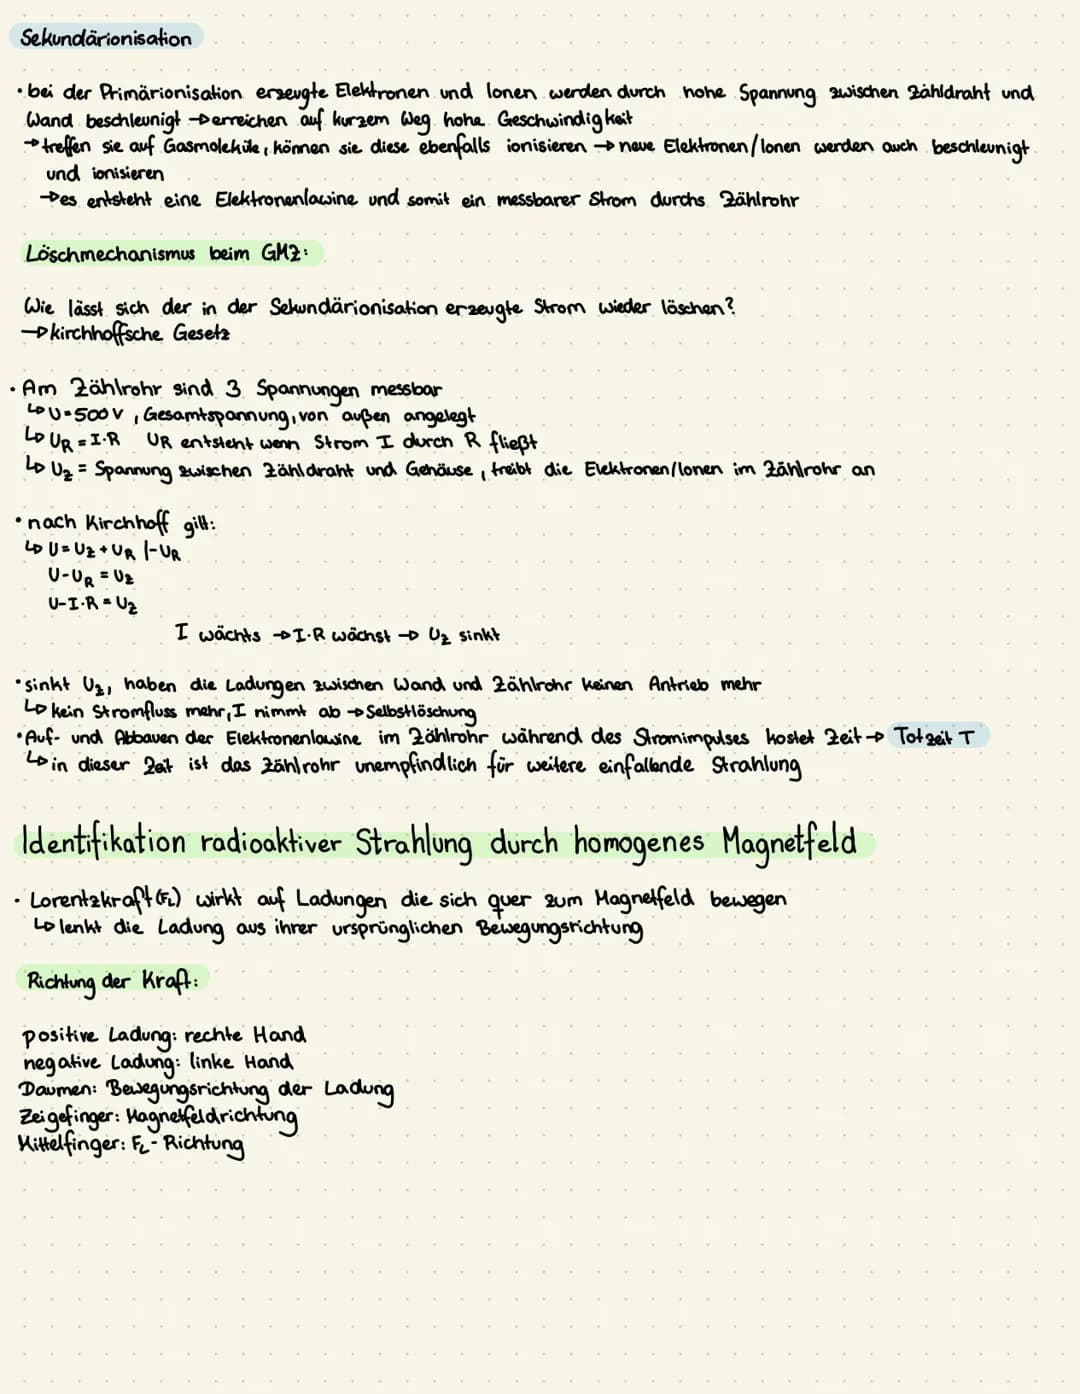 Sekundärionisation
• bei der Primärionisation erzeugte Elektronen und Ionen werden durch hohe Spannung zwischen Zähldraht und
Wand beschleunigt → erreichen auf kurzem Weg hohe Geschwindigkeit
→ treffen sie auf Gasmoleküle, können sie diese ebenfalls ionisieren → neue Elektronen/Ionen werden auch beschleunigt
und ionisieren
→ es entsteht eine Elektronenlawine und somit ein messbarer Strom durchs Zählrohr
Löschmechanismus beim GMZ:
Wie lässt sich der in der Sekundärionisation erzeugte Strom wieder löschen?
→ kirchhoffsche Gesetz
• Am Zählrohr sind 3 Spannungen messbar
↳ U=500V, Gesamtspannung, von außen angelegt
↳ UR = I·R UR entsteht wenn Strom I durch R fließt
↳ Uz = Spannung zwischen Zähldraht und Gehäuse, treibt die Elektronen/Ionen im Zählrohr an
• nach Kirchhoff gilt:
↳ U=Uz+UR |-UR
U-UR = Uz
U-I·R = Uz
I wächts → I·R wächst → Uz sinkt
• sinkt Uz, haben die Ladungen zwischen Wand und Zählrohr keinen Antrieb mehr
↳ kein Stromfluss mehr, I nimmt ab → Selbstlöschung
• Auf- und Abbauen der Elektronenlawine im Zählrohr während des Stromimpulses kostet Zeit → Totzeit T
↳ in dieser Zeit ist das Zählrohr unempfindlich für weitere einfallende Strahlung
Identifikation radioaktiver Strahlung durch homogenes Magnetfeld
• Lorentzkraft (FL) wirkt auf Ladungen die sich quer zum Magnetfeld bewegen
↳ lenkt die Ladung aus ihrer ursprünglichen Bewegungsrichtung
Richtung der Kraft:
positive Ladung: rechte Hand
negative Ladung: linke Hand
Daumen: Bewegungsrichtung der Ladung
Zeigefinger: Magnetfeldrichtung
Mittelfinger: FL - Richtung